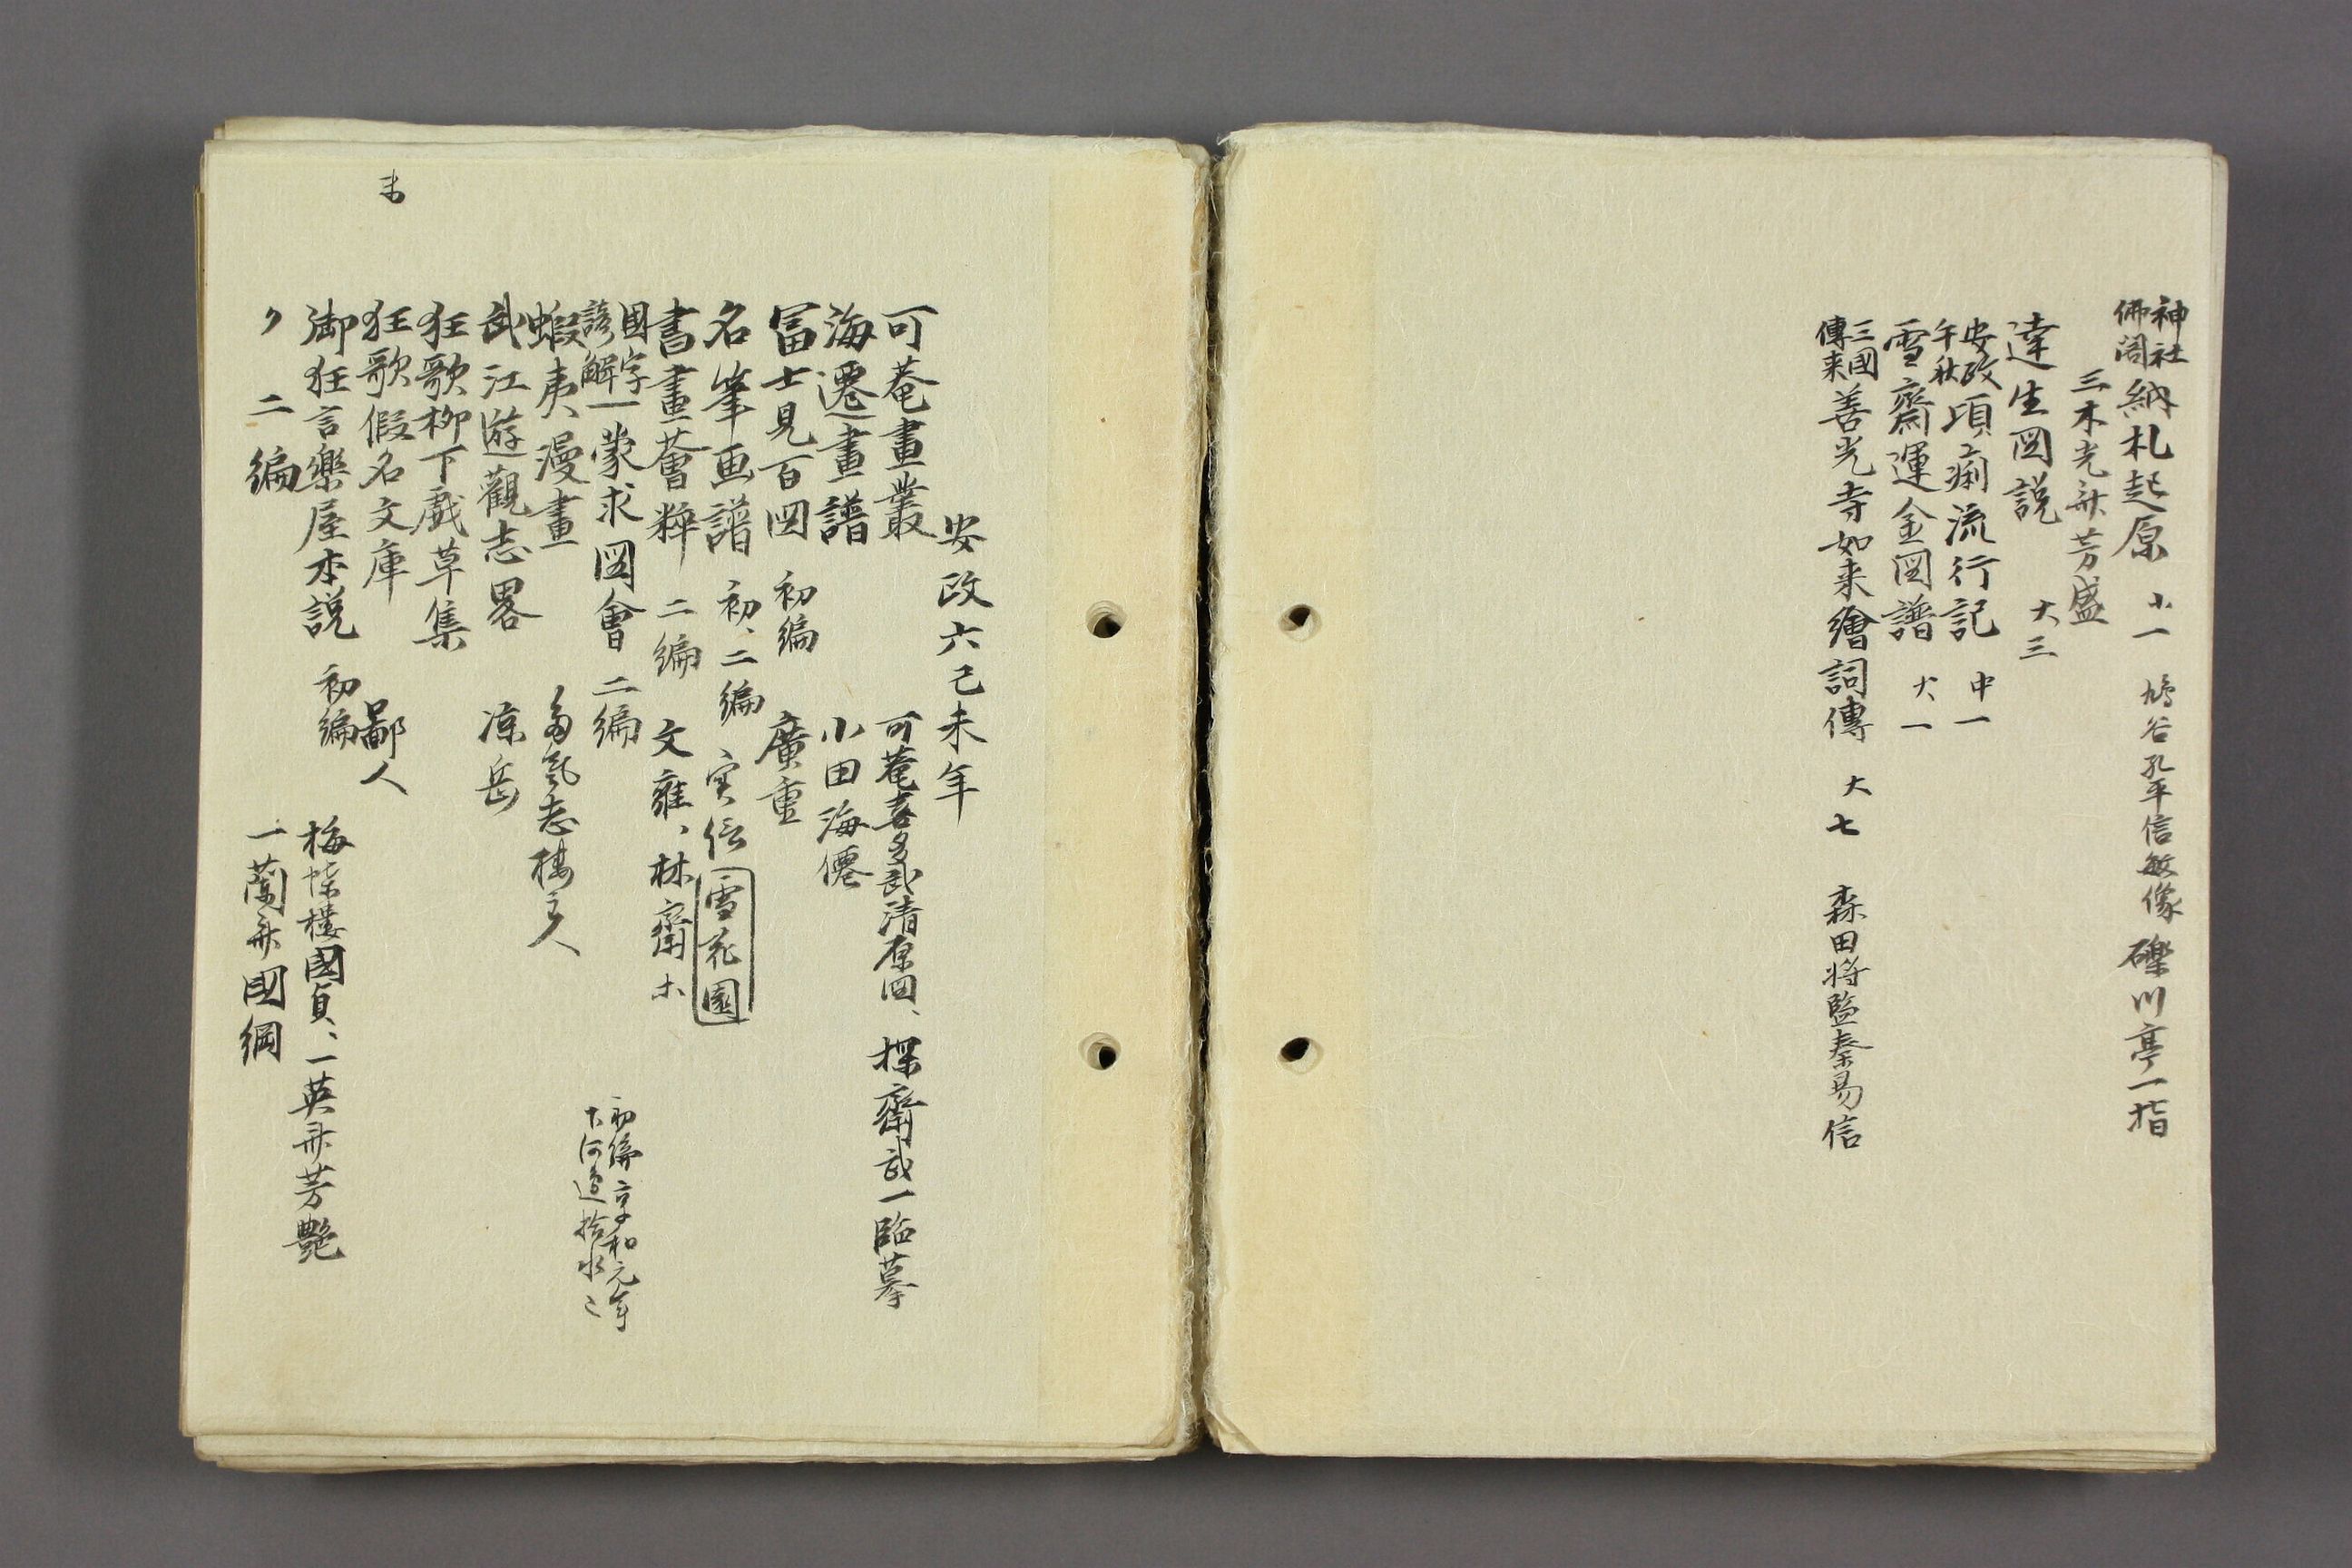 神社
佛閣 納札起原 小一 鳩谷孔平信敏像 礫川亭一指
三木光斎芳盛
達生図説 大三
安政
午秋 項痢流行記 中一
雪齋運金図譜 大一
三國
傳来 善光寺如来繪詞傳 大七 森田將監秦易信
安政六己未年
可菴畫叢 可菴喜多武清原図、探齋武一臨摹
海僊畫譜 小田海僊
冨士見百図 初編 廣重
名筆画譜 初、二編 雪花園
書畫薈粹 二編 文雍、林齋
國字
諺解 蒙求図會 二編 初編享和元年
下河邊拾水
蝦夷漫畫 多気志楼主人
武江遊觀志畧 凉岳
狂歌柳下戯草集
狂歌假名文庫 鄙人
御狂言樂屋本説 初編 梅蝶樓國貞、一英斎芳艶
〃 二編 一蘭斎國綱